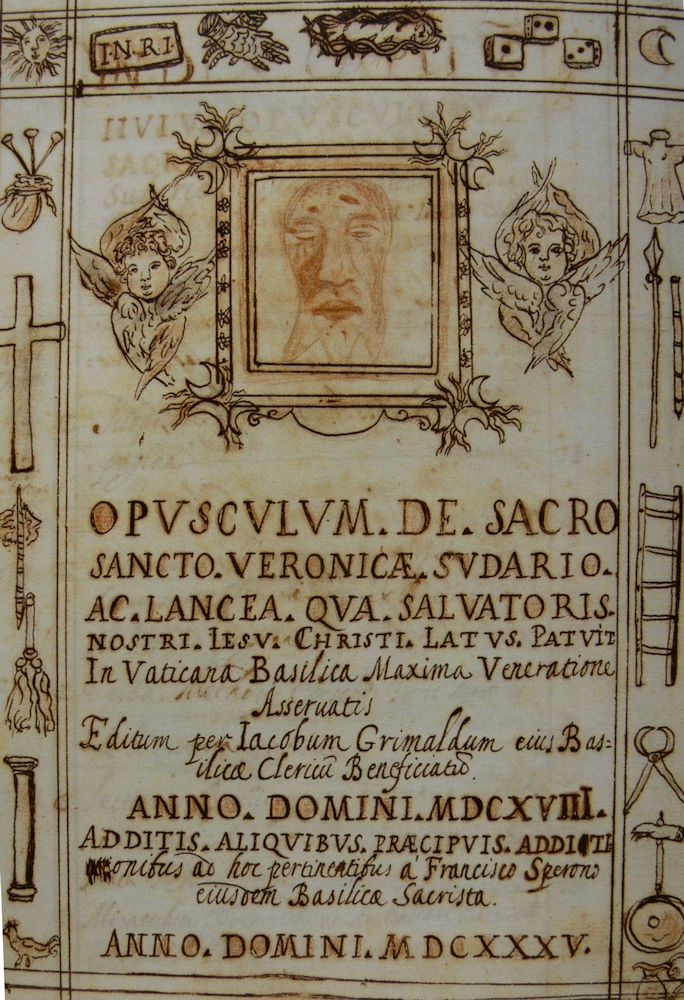 I·N·R·I
OPVSCVLVM. DE. SACRO
SANCTO. VERONICÆ. SVDARIO.
AC. LANCEA. QVA. SALVATORIS.
NOSTRI. IESV. CHRISTI. LATVS. PATVIT
In Vaticana Basilica Maxima Veneratione
Asseruatis
Editum per Iacobum Grimaldum eius Bas=
ilicæ Clericũ Beneficiatũ.
ANNO. DOMINI. MDCXVIII.
ADDITIS. ALIQVIBVS. PRÆCIPVIS. ADDICTI
onibus ad hoc pertinentibus á Francisco Sperono
eiusdem Basilicæ Sacrista.
ANNO. DOMINI. MDCXXXV.